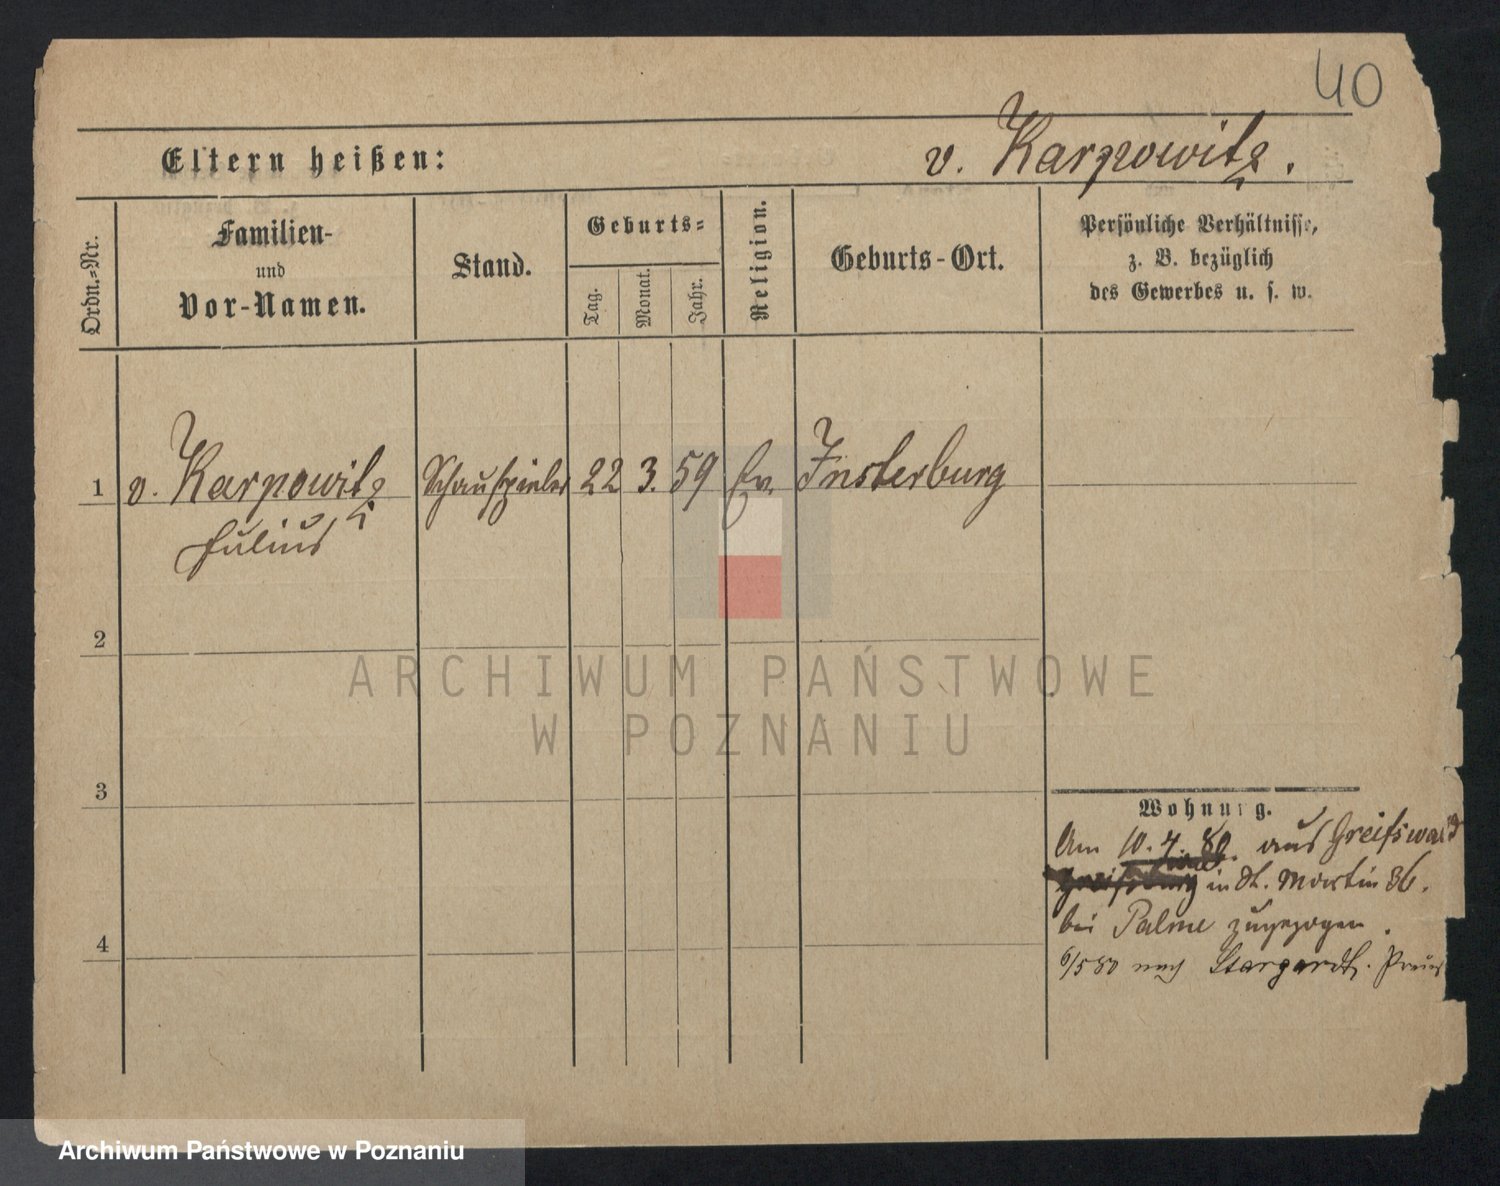 40
Eltern heißen:
v. Karpowitz.
Ordn.-Nr.
Familien-
und
Vor-Namen.
Stand.
Geburts-
Tag.
Monat.
Jahr.
Religion.
Geburts-Ort.
Persönliche Verhältnisse,
z. B. bezüglich
des Gewerbes u. s. w.
1 v. Karpowitz Schauspieler 22 3. 59 Ev. Insterburg
Julius
2
ARCHIWUM PAŃSTWOWE
W POZNANIU
3
Wohnung.
Am 10. 4. 80. aus Greifswald
in St. Martin 36.
bei Palme zugezogen.
4
6/5 80 nach Stargardt.
Archiwum Państwowe w Poznaniu